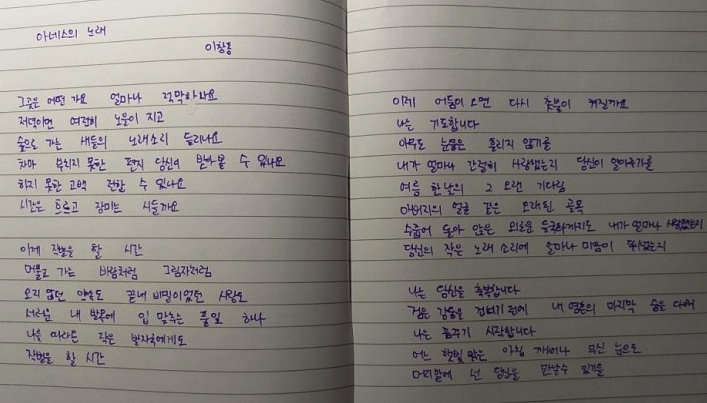 아네스의 노래
이창동
그곳은 어떤 가요 얼마나 적막하나요
저녁이면 여전히 노을이 지고
숲으로 가는 새들의 노래소리 들리나요
차마 부치지 못한 편지 당신이 받아볼 수 있나요
하지 못한 고백 전할 수 있나요
시간은 흐르고 장미는 시들까요
이제 작별을 할 시간
머물고 가는 바람처럼 그림자처럼
오지 않던 약속도 끝내 비밀이었던 사랑도
서러운 내 발목에 입 맞추는 풀잎 하나
나를 따라온 작은 발자국에게도
작별을 할 시간
이제 어둠이 오면 다시 촛불이 켜질까요
나는 기도합니다
아무도 눈물은 흘리지 않기를
내가 얼마나 간절히 사랑했는지 당신이 알아주기를
여름 한낮의 그 오랜 기다림
아버지의 얼굴 같은 오래된 골목
수줍어 돌아 앉은 외로운 들국화까지도 내가 얼마나 사랑했는지
당신의 작은 노래 소리에 얼마나 가슴이 뛰었는지
나는 당신을 축복합니다
검은 강물을 건너기 전에 내 영혼의 마지막 숨을 다해
나는 꿈꾸기 시작합니다
어느 햇빛 맑은 아침 깨어나 부신 눈으로
머리맡에 선 당신을 만날수 있기를